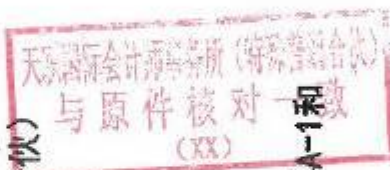 天职国际会计师事务所（特殊普通合伙）
与原件核对一致
（XX）
伙）
A-1和